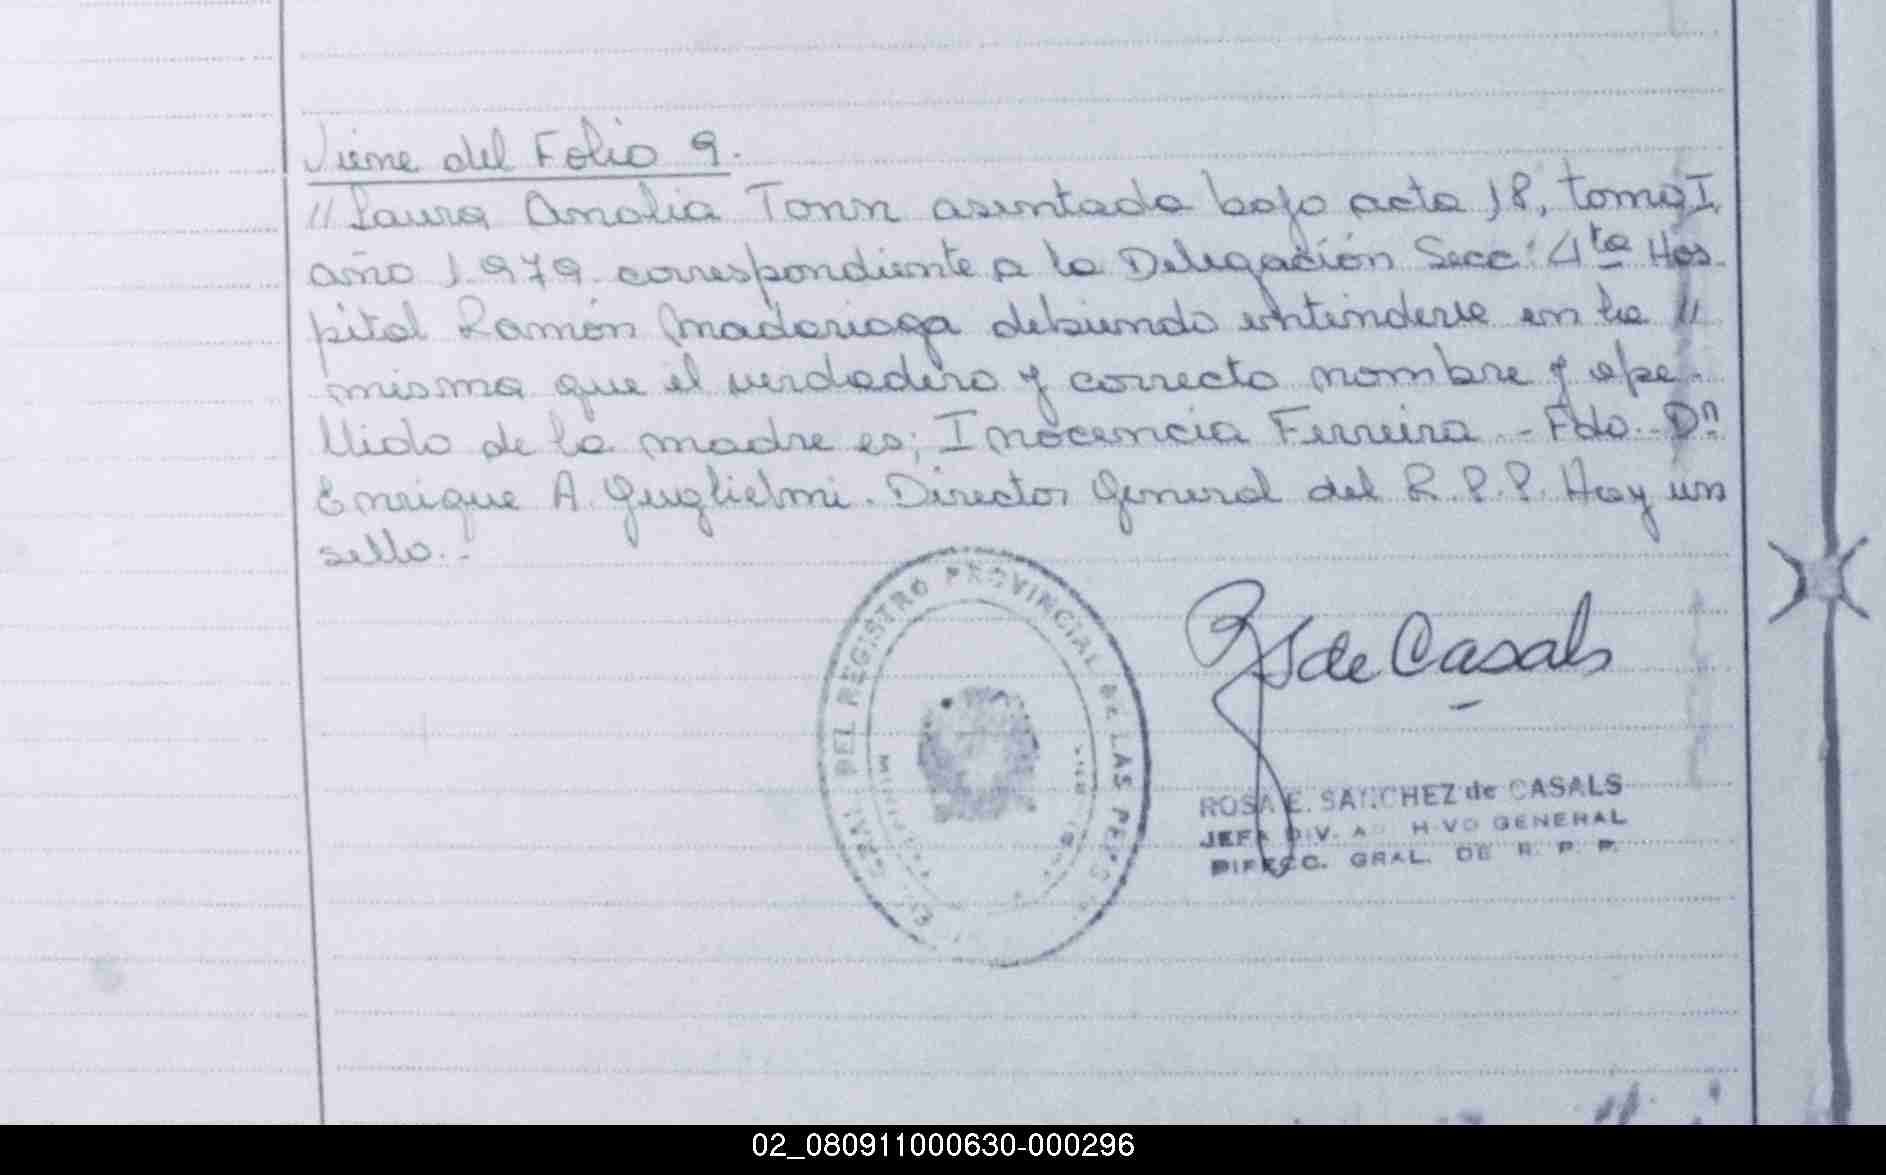 Viene del Folio 9.
// Laura Analia Tonn asentada bajo acta 18, tomo I,
año 1.979 correspondiente a la Delegación Secc: 4ta Hos-
pital Ramón Madariaga debiendo entenderse en la //
misma que el verdadero y correcto nombre y ape-
llido de la madre es; Inocencia Ferreira.- Fdo.- Dn
Enrique A. Guglielmi. Director General del R.P.P. Hay un
sello.-
GRAL. DEL REGISTRO PROVINCIAL DE LAS PERS
S de Casals
ROSA E. SANCHEZ de CASALS
JEFA DIV. A HIVO GENERAL
DIRECC. GRAL. DE R. P. P.
02_080911000630-000296